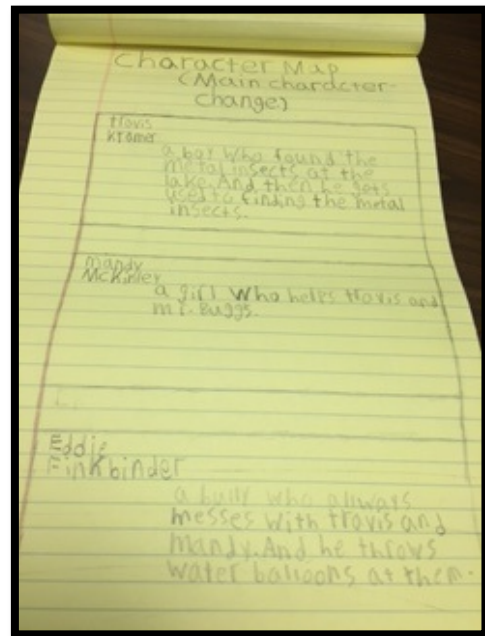 Character Map
(Main chardcter-
change)
travis
Kromer
a boy who found the
metal insects at the
lake. And then he gets
used to finding the metal
insects.
mandy
McKinley
a girl who helps travis and
mr. Buggs.
Eddie
Finkbinder
a bully who allways
messes with travis and
mandy. And he throws
water balloons at them.